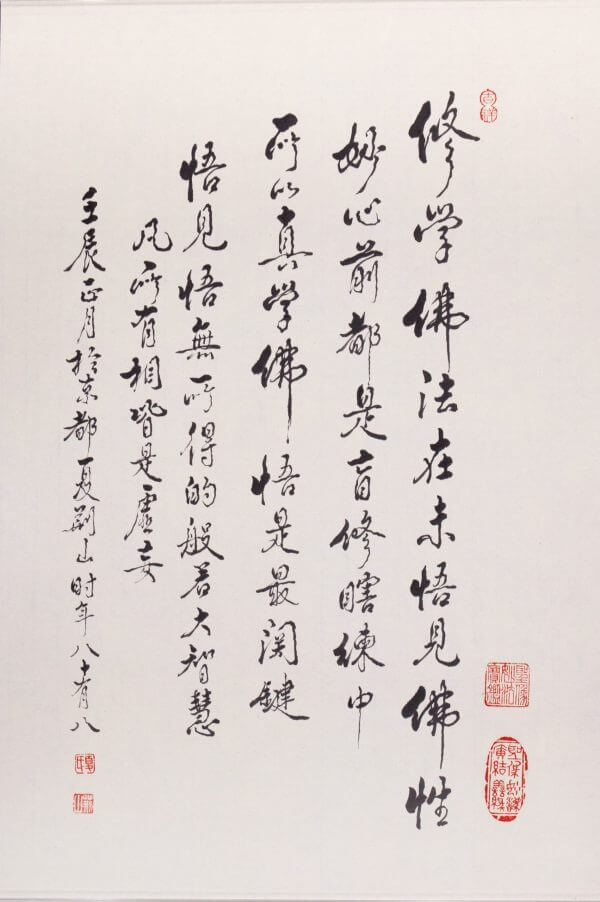 修学佛法在未悟见佛性
妙心前都是盲修瞎練中
所以真學佛悟是最関鍵
悟見悟無所得的般若大智慧
凡所有相皆是虛妄
壬辰正月於京都夏荆山时年八十有八
吉祥